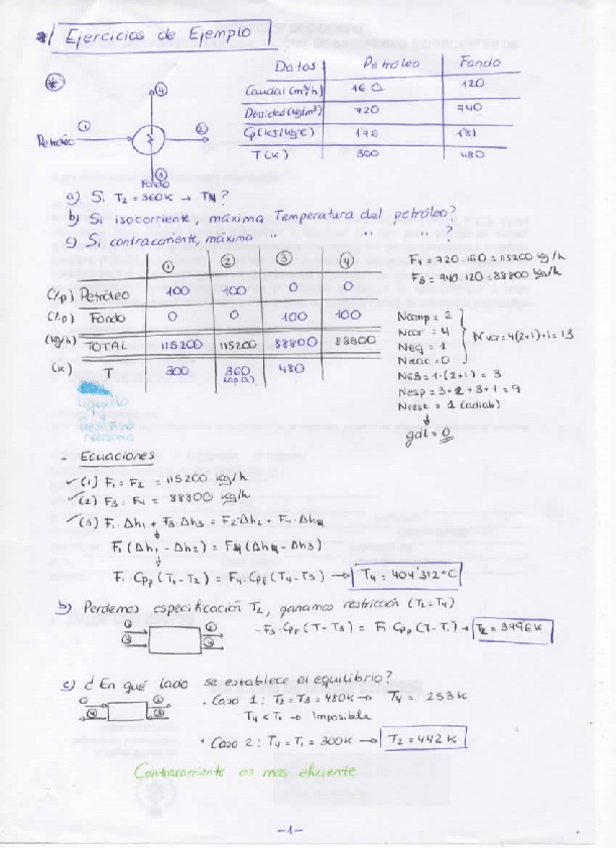 */ Ejercicios de Ejemplo
Datos Petróleo Fondo
Caudal (m³/h) 160 120
Densidad (kg/m³) 720 740
Cp (kJ/kg°C) 1'75 1'81
T (K) 300 480
Petróleo ① ② ③ ④ Fondo
a) Si T2 = 360K → T4?
b) Si isocorriente, máxima Temperatura del petróleo?
c) Si contracorriente, máxima " " " ?
F1 = 720·160 = 115200 kg/h
F3 = 740·120 = 88800 kg/h
① ② ③ ④
(%p) Petróleo 100 100 0 0
(%p) Fondo 0 0 100 100
(kg/h) TOTAL 115200 115200 88800 88800
(K) T 300 360 (ap.a) 480
Líquido
y
Presión no
necesaria
Ncomp = 2
Ncor = 4
Neq = 1
Nreac = 0
Nvar = 4(2+1)+1 = 13
NEB = 1·(2+1) = 3
Nesp = 3+2+3+1 = 9
Nrest = 1 (adiab)
gdl = 0
- Ecuaciones
✓(1) F1 = F2 = 115200 kg/h
✓(2) F3 = F4 = 88800 kg/h
✓(3) F1·Δh1 + F3·Δh3 = F2·Δh2 + F4·Δh4
F1 (Δh1 - Δh2) = F4 (Δh4 - Δh3)
F1·Cpp (T1-T2) = F4·Cpf (T4-T3) → T4 = 404'312°C
b) Perdemos especificación T2, ganamos restricción (T2=T4)
① ② ③ ④
-F3·Cpf (T-T3) = F1·Cpp (T-T1) → T2 = 379'6K
c) ¿En qué lado se establece el equilibrio?
① ② ④ ③
· Caso 1: T2 = T3 = 480K → T4 = 253K
T4 < T1 → Imposible
· Caso 2: T4 = T1 = 300K → T2 = 442K
Contracorriente es más eficiente
-1-